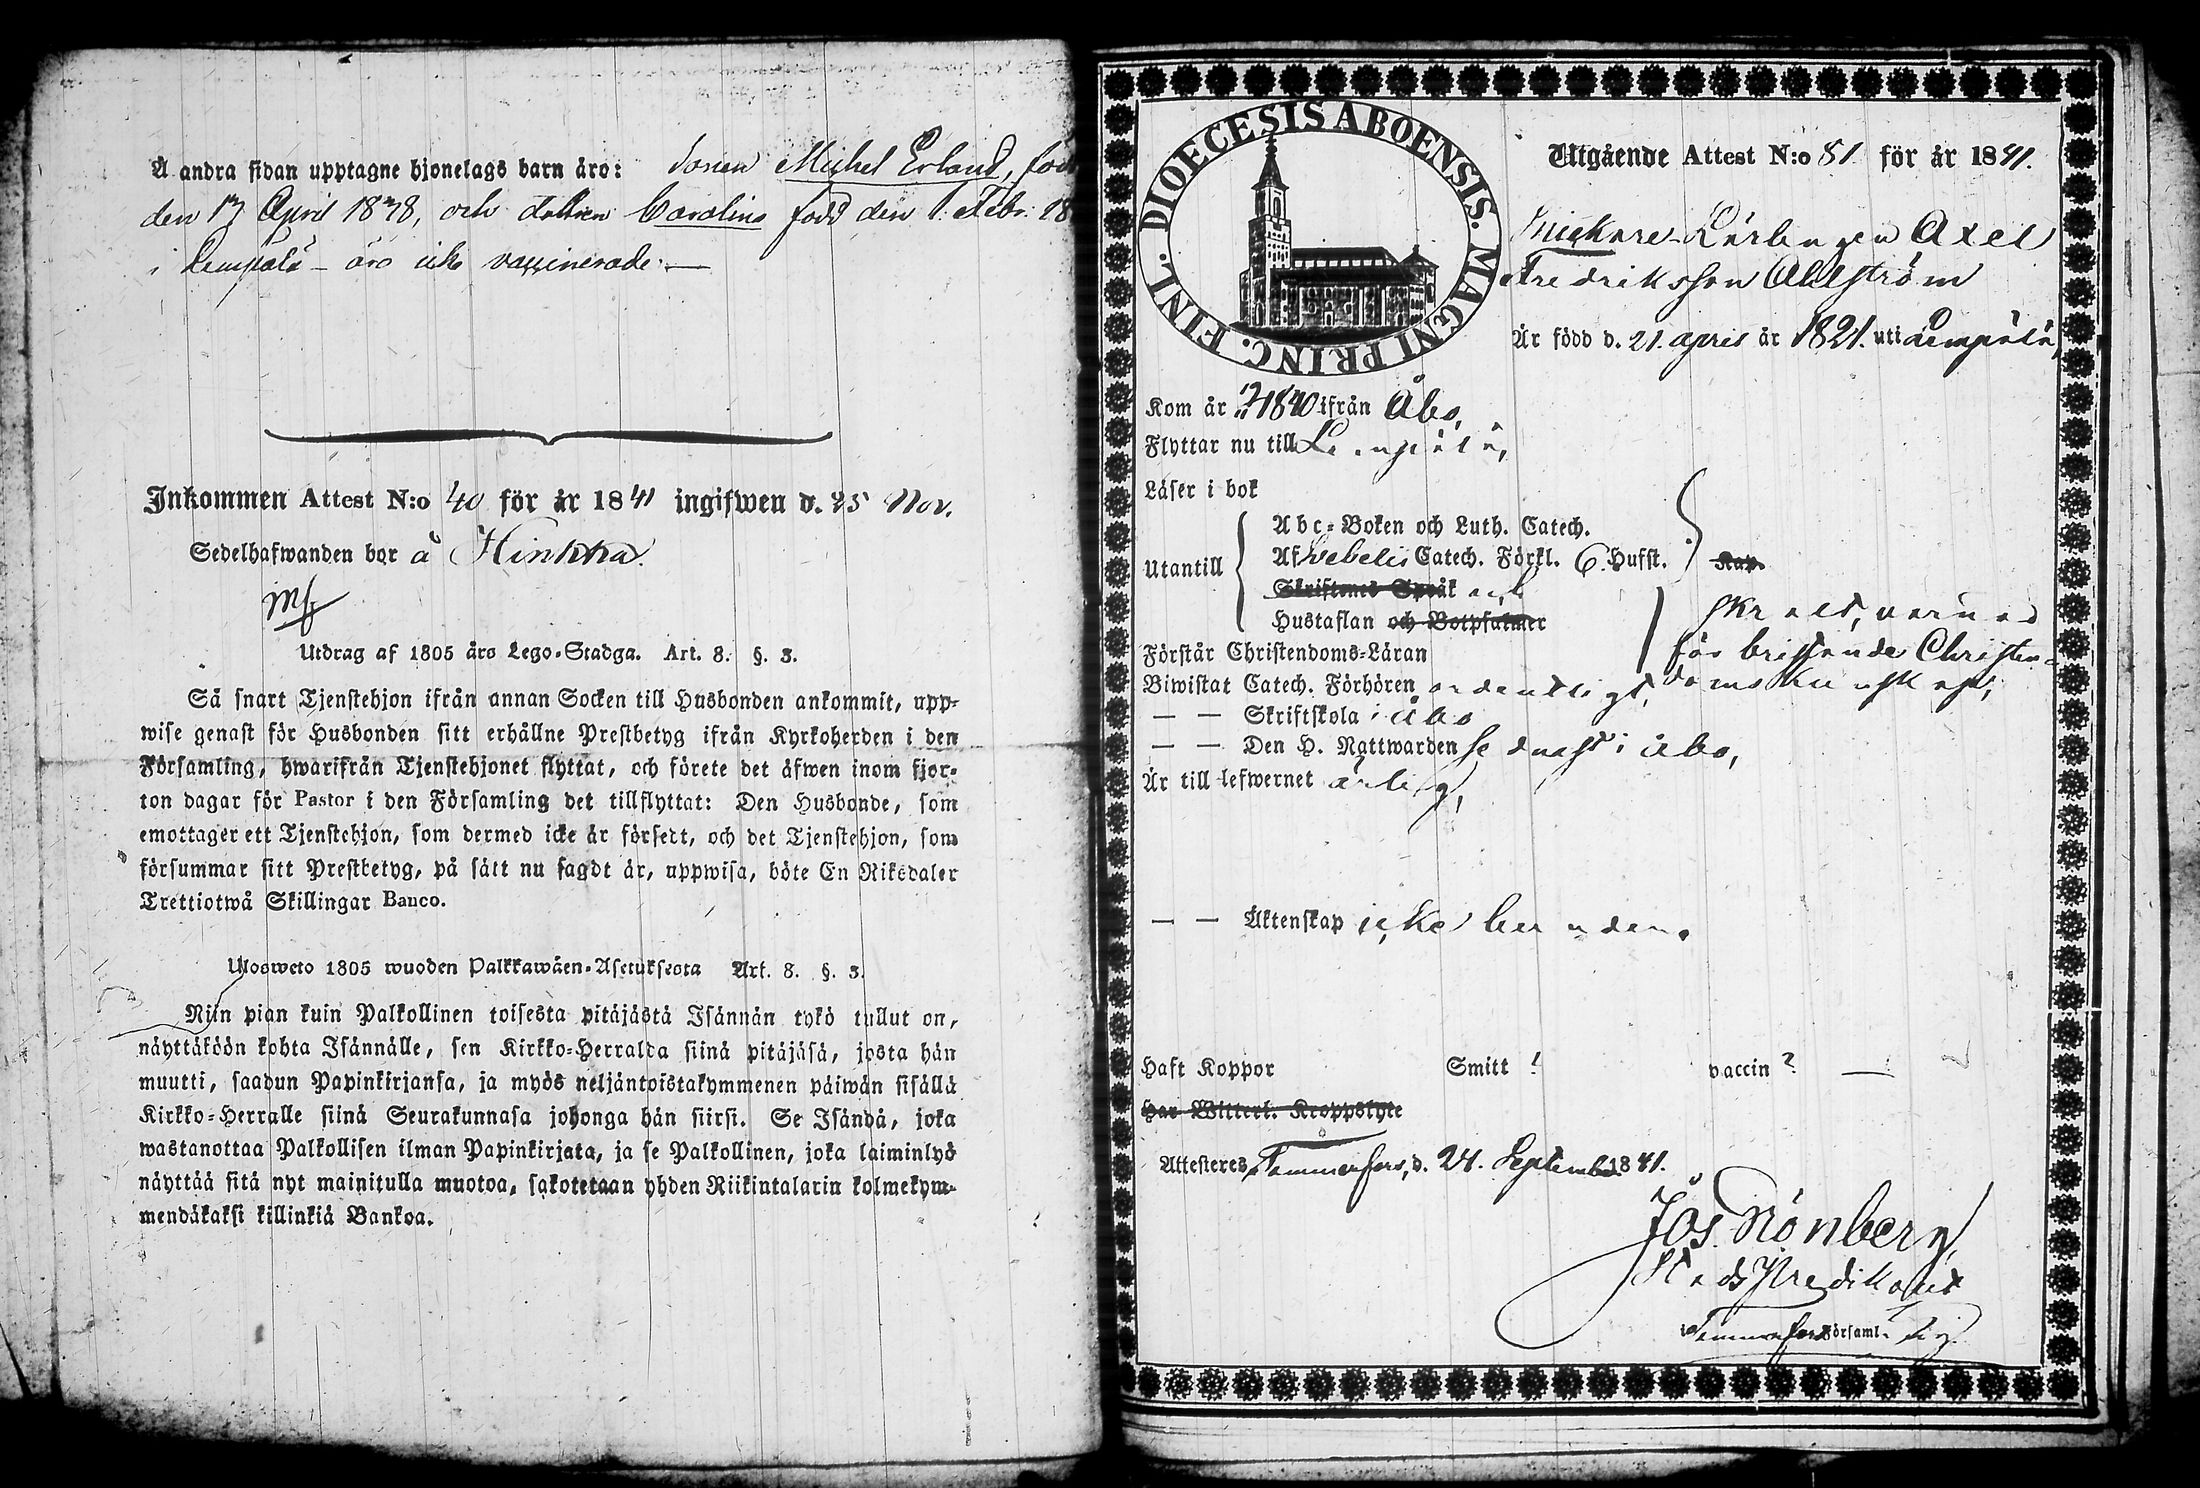 Å andra sidan upptagne hjonelags barn äro: Sonen Michel Erland, född
den 17 April 1838, och dottren Carolina född den 1. Febr. 18
i Lempälä - äro icke vaccinerade. —
Inkommen Attest N:o 40 för år 1841 ingifwen d. 25 Nov.
Sedelhafwanden bor å Hinkka.
Utdrag af 1805 års Lego-Stadga. Art. 8. §. 3.
Så snart Tjenstehjon ifrån annan Socken till Husbonden ankommit, upp-
wise genast för Husbonden sitt erhållne Prestbetyg ifrån Kyrkoherden i den
Församling, hwarifrån Tjenstehjonet flyttat, och förete det äfwen inom fjor-
ton dagar för Pastor i den Församling det tillflyttat: Den Husbonde, som
emottager ett Tjenstehjon, som dermed icke är försedt, och det Tjenstehjon, som
försummar sitt Prestbetyg, på sätt nu sagdt är, uppwisa, böte En Riksdaler
Trettiotwå Skillingar Banco.
Ulosweto 1805 wuoden Palkkawäen-Asetuksesta Art. 8. §. 3.
Niin pian kuin Palkollinen toisesta pitäjästä Isännän tykö tullut on,
näyttäköön kohta Isännälle, sen Kirkko-Herralda siinä pitäjäsä, josta hän
muutti, saadun Papinkirjansa, ja myös neljäntoistakymmenen päiwän sisällä
Kirkko-Herralle siinä Seurakunnasa johonga hän siirsi. Se Isändä, joka
wastanottaa Palkollisen ilman Papinkirjata, ja se Palkollinen, joka laiminlyö
näyttää sitä nyt mainitulla muotoa, sakotetaan yhden Riikintalarin kolmekym-
mendäkaksi killinkiä Bankoa.
DIOECESIS ABOENSIS. MAGNI PRINC. FINL.
Utgående Attest N:o 81 för år 1841.
Snickare-Lärlingen Axel
Fredriksson Ahlström
Är född d. 21. april år 1821. uti Lempälä,
Kom år 1840 ifrån Åbo,
Flyttar nu till Lempälä,
Läser i bok
Utantill
Abc-Boken och Luth. Catech.
Af Svebelii Catech. Förkl. 6. Hufst. Kap.
Skriftenes Språk och
Hustaflan och Botpsalmer
Förstår Christendoms-Läran
för bristande Christen-
Biwistat Catech. Förhören ordentligt, doms kunskap,
— — Skriftskola i Åbo
— — Den H. Nattwarden senast i Åbo,
Är till lefwernet ärlig,
— — Äktenskap icke bunden.
Haft Koppor Smitt ? vaccin ? —
Har Witterl. Kroppslyte
Attesteres, Tammerfors, d. 24. September 1841.
Jos. Grönberg,
Stads Predikant
i Tammerfors Församl.